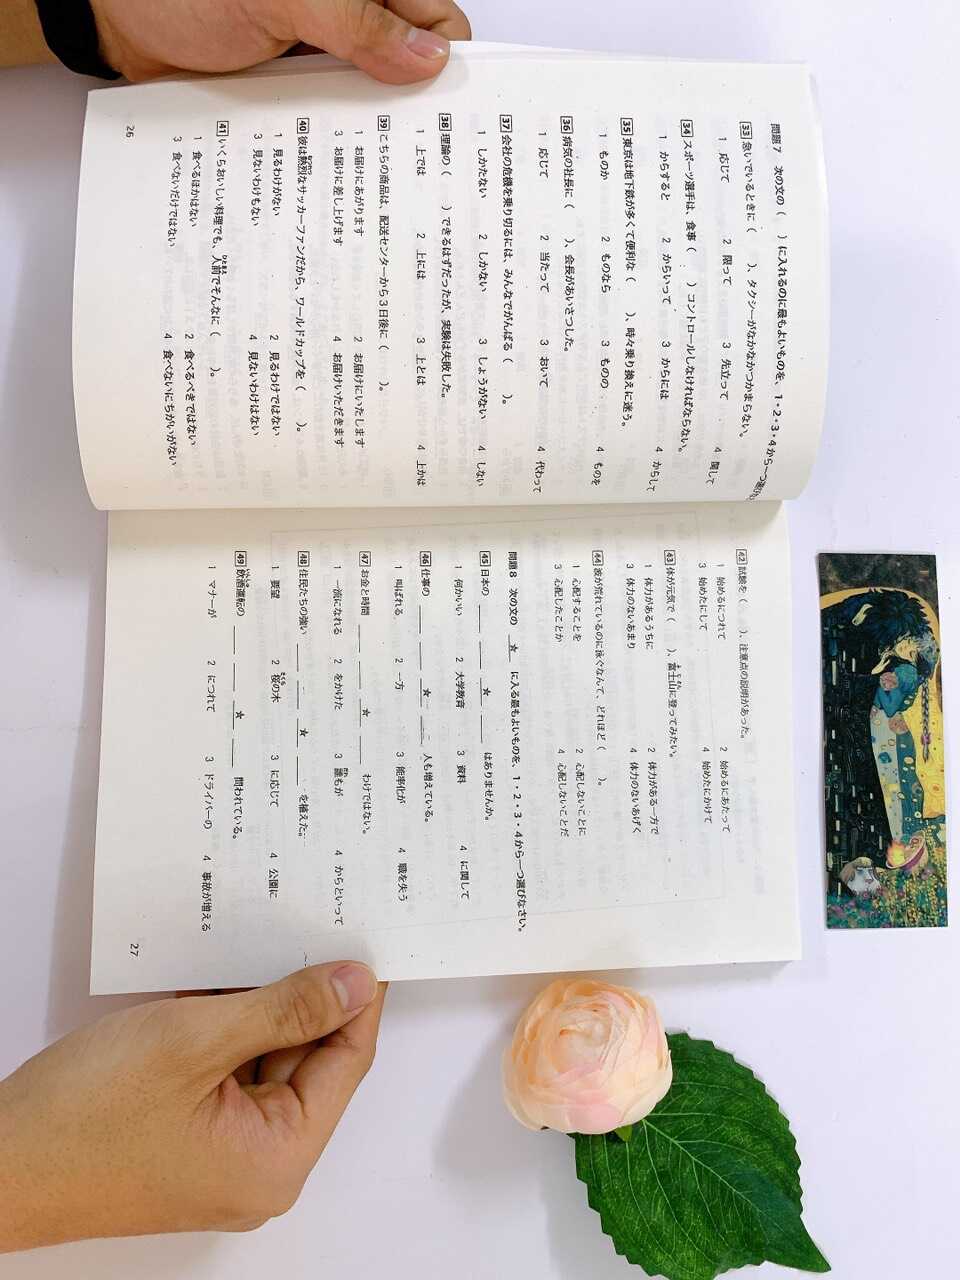 問題７　次の文の（　　）に入れるのに最もよいものを、１・２・３・４から一つ選び
33 急いでいるときに（　　）、タクシーがなかなかつかまらない。
1　応じて　2　限って　3　先立って　4　関して
34 スポーツ選手は、食事（　　）コントロールしなければならない。
1　からすると　2　からいって　3　からには　4　からして
35 東京は地下鉄が多くて便利な（　　）、時々乗り換えに迷う。
1　ものか　2　ものなら　3　ものの　4　ものを
36 病気の社長に（　　）、会長があいさつした。
1　応じて　2　当たって　3　おいて　4　代わって
37 会社の危機を乗り切るには、みんなでがんばる（　　）。
1　しかたない　2　しかない　3　しょうがない　4　しない
38 理論の（　　）できるはずだったが、実験は失敗した。
1　上では　2　上には　3　上とは　4　上かは
39 こちらの商品は、配送センターから３日後に（　　）。
1　お届けにあがります　2　お届けにいたします
3　お届けに差し上げます　4　お届けいただきます
40 彼は熱烈なサッカーファンだから、ワールドカップを（　　）。
1　見るわけがない　2　見るわけではない
3　見ないわけもない　4　見ないわけはない
41 いくらおいしい料理でも、人前でそんなに（　　）。
1　食べるほかはない　2　食べるべきではない
3　食べないだけではない　4　食べないにちがいがない
26
42 試験を（　　）、注意点の説明があった。
1　始めるにつれて　2　始めるにあたって
3　始めたにして　4　始めたにかけて
43 体が元気で（　　）、富士山に登ってみたい。
1　体力があるうちに　2　体力がある一方で
3　体力のないあまり　4　体力のないあげく
44 波が荒れているのに泳ぐなんて、どれほど（　　）。
1　心配することを　2　心配しないことに
3　心配したことか　4　心配しないことだ
問題８　次の文の　★　に入る最もよいものを、１・２・３・４から一つ選びなさい。
45 日本の ＿＿ ＿＿ ★ ＿＿ はありませんか。
1　何かいい　2　大学教育　3　資料　4　に関して
46 仕事の ＿＿ ＿＿ ★ ＿＿ 人も増えている。
1　叫ばれる　2　一方　3　能率化が　4　職を失う
47 お金と時間 ＿＿ ＿＿ ★ ＿＿ わけではない。
1　一流になれる　2　をかけた　3　誰もが　4　からといって
48 住民たちの強い ＿＿ ＿＿ ★ ＿＿ を植えた。
1　要望　2　桜の木　3　に応じて　4　公園に
49 飲酒運転の ＿＿ ＿＿ ★ ＿＿ 問われている。
1　マナーが　2　につれて　3　ドライバーの　4　事故が増える
27